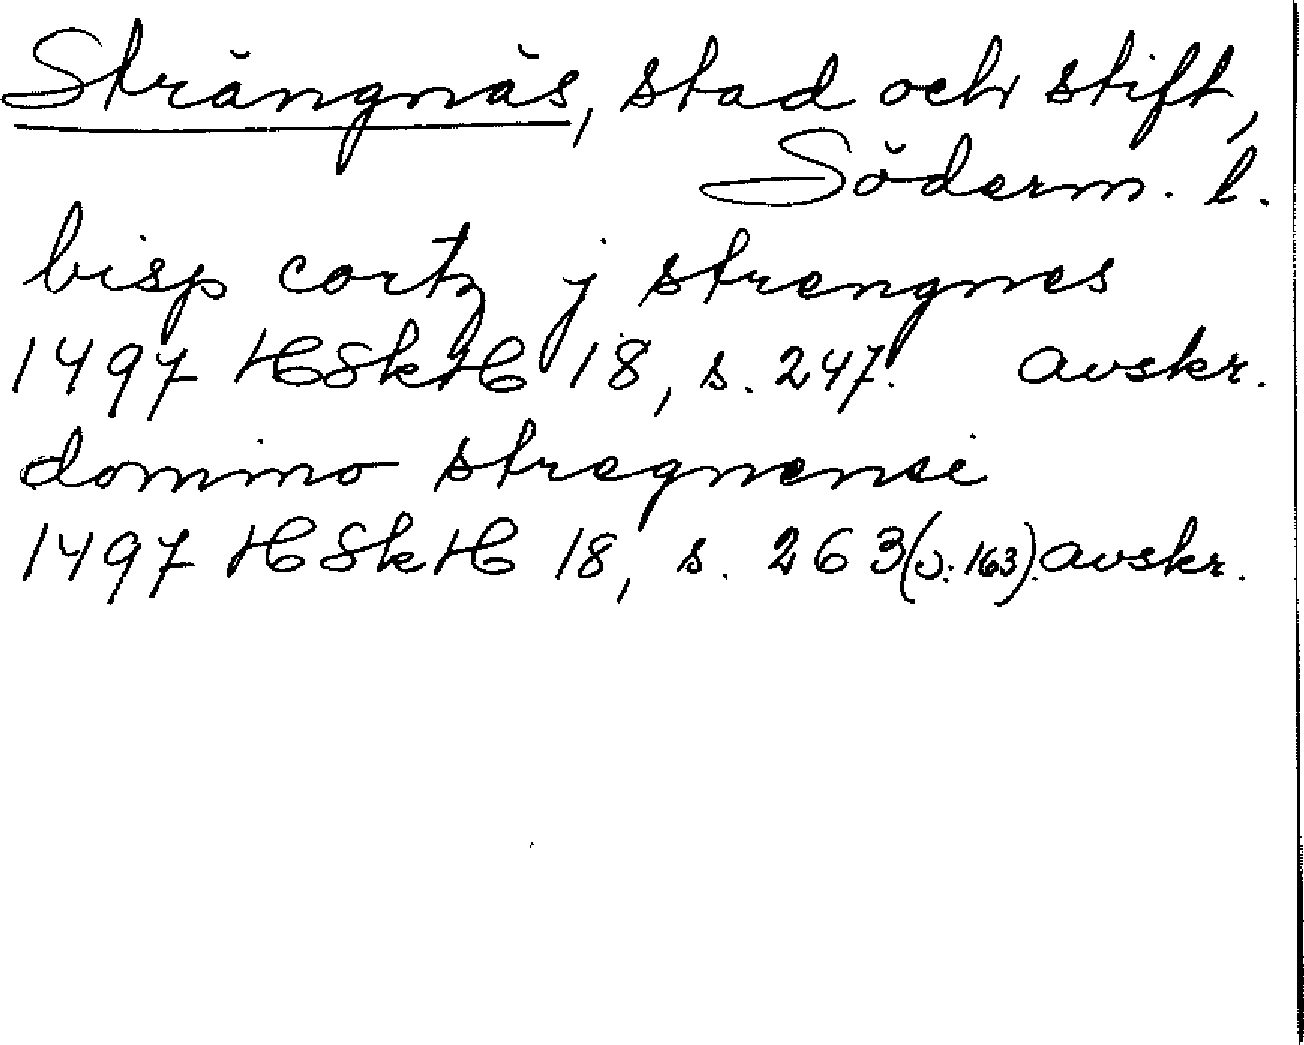 Strängnäs, stad och stift,
Söderm. l.
bisp cortz j strengnes
1497 HSkH 18, s. 247. avskr.
domino stregnensi
1497 HSkH 18, s. 263(o: 163). avskr.